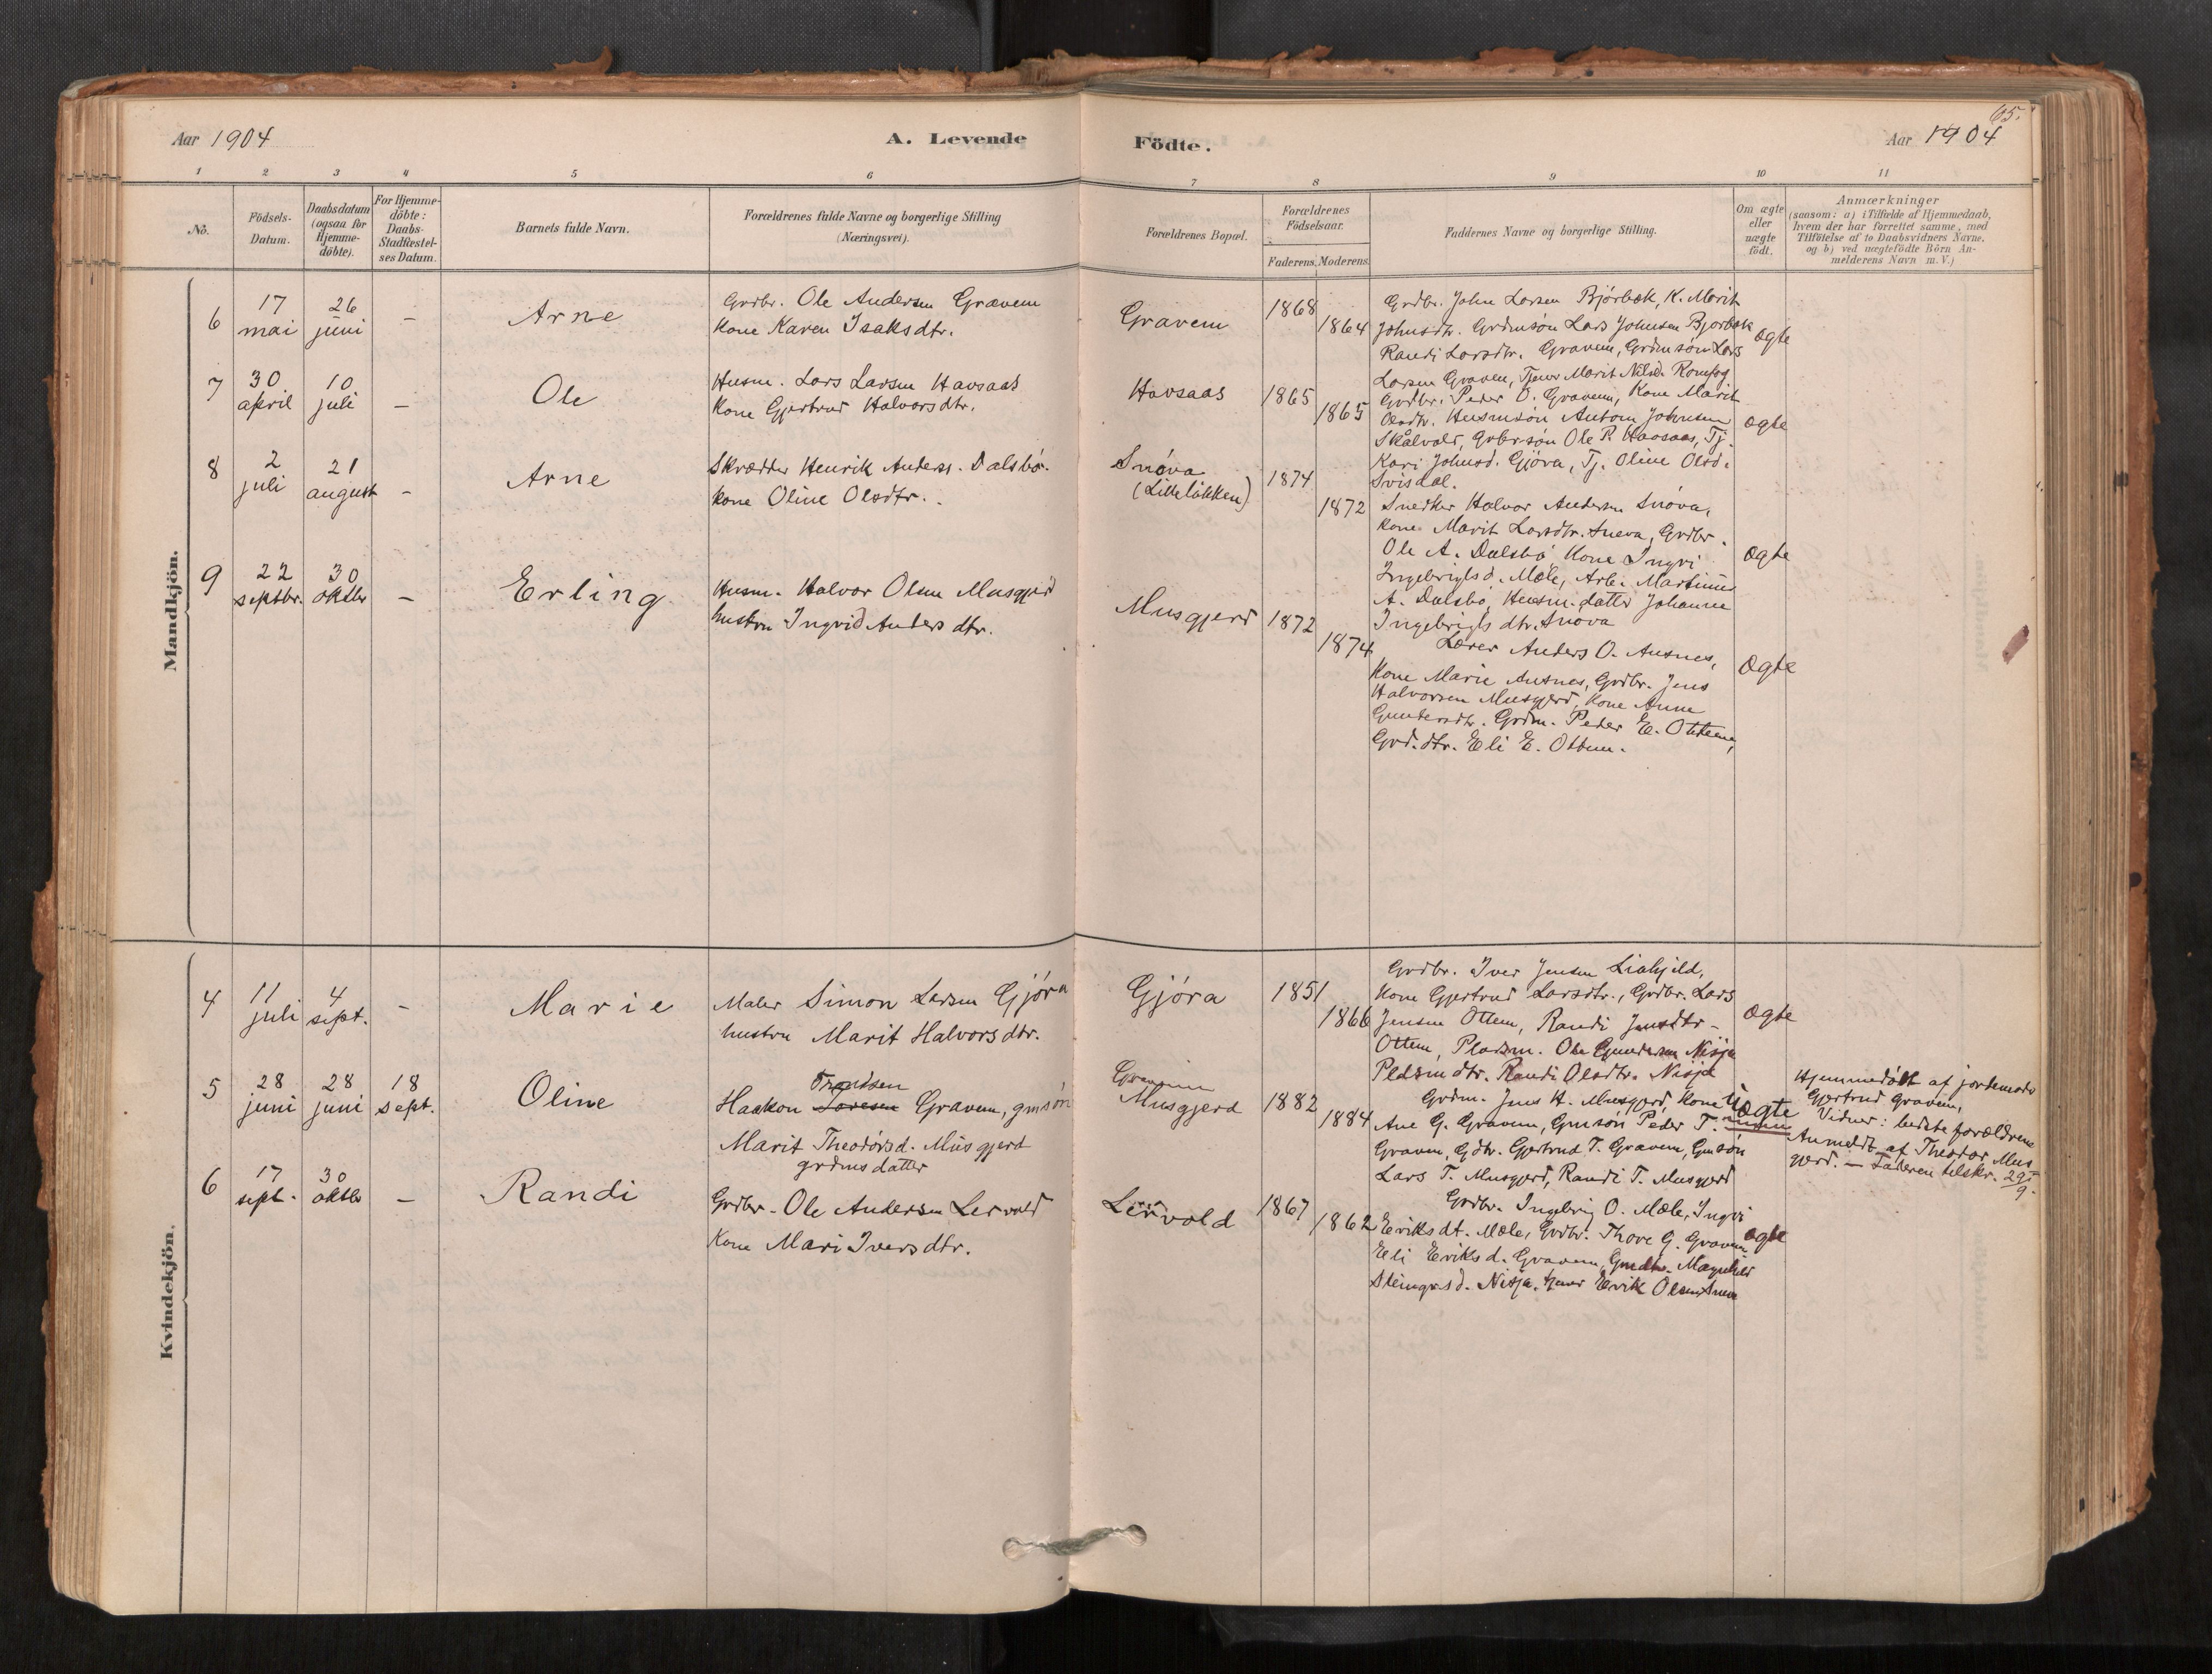 65.
Aar 1904
A. Levende
Födte.
Aar 1904
1 2 3 4 5 6 7 8 9 10 11
No.
Födsels-
Datum.
Daabsdatum
(ogsaa for
Hjemme-
döbte).
For Hjemme-
döbte:
Daabs-
Stadfæstel-
ses Datum.
Barnets fulde Navn.
Forældrenes fulde Navne og borgerlige Stilling
(Næringsvei).
Forældrenes Bopæl.
Forældrenes
Födselsaar.
Faderens. Moderens.
Faddernes Navne og borgerlige Stilling.
Om ægte
eller
uægte
födt.
Anmærkninger
(saasom: a) i Tilfælde af Hjemmedaab,
hvem der har forrettet samme, med
Tilföielse af to Daabsvidners Navne,
og b) ved uægtefödte Börn An-
melderens Navn m. V.)
Mandkjön.
6
17
mai
26
juni
–
Arne
Grdbr. Ole Andersen Gravem
Kone Karen Isaksdtr.
Gravem
1868
1864
Grdbr. John Larsen Bjørbæk, K. Marit
Johnsdtr. Grdmsøn Lars Johnsen Bjørbæk
Randi Larsdtr. Gravem, Grdmsøn Lars
Larsen Graven, Tjener Marit Nilsd. Romfog
ægte
7
30
april
10
juli
–
Ole
Husm. Lars Larsen Havsaas
Kone Gjertrud Halvorsdtr.
Havsaas
1865
1865
Grdbr. Peder O. Gravem, Kone Marit
Olsdtr. Husmsøn Anton Johnsen
Skålvold, Grbrsøn Ole P. Havsaas, Tj.
Kari Johnsd. Gjöra, Tj. Oline Olsd.
Svisdal.
ægte
8
2
juli
21
august
–
Arne
Skrædder Henrik Anders. Dalsbø.
Kone Oline Olsdtr.
Snöva
(Lilleløkken)
1874
1872
Snedker Halvor Andersen Snöva,
Kone Marit Larsdtr. Snøva, Grdbr.
Ole A. Dalsbø Kone Ingri
Ingebrigtsd. Mæle, Arb. Martinus
A. Dalsbø, Husm.datter Johanne
Ingebrigtsdtr. Snøva
ægte
9
22
septbr.
30
oktbr
–
Erling
Husm. Halvor Olsen Musgjerd
hustru Ingrid Andersdtr.
Musgjerd
1872
1874
Lærer Anders O. Ausnes,
Kone Marie Ausnes, Grdbr. Jens
Halvorsen Musgjerd, Kone Anne
Gundersdtr. Grdm. Peder E. Ottem,
Grd.dtr. Eli E. Ottem.
ægte
Kvindekjön.
4
11
juli
4
sept.
–
Marie
Maler Simon Larsen Gjöra
hustru Marit Halvorsdtr.
Gjóra
1851
1866
Grdbr. Iver Jensen Liahjeld,
Kone Gjertrud Larsdtr., Grdbr. Lars
Jensen Ottem, Randi Jensdtr.
Ottem, Pladsm. Ole Gundersen Nisja
Pldsmdtr. Randi Olsdtr. Nisja
ægte
5
28
juni
28
juni
18
sept.
Oline
Trondsen
Haakon Larsen Gravem, gmsön
Marit Theodørsd. Musgjerd
grdmsdatter
Gravem
Musgjerd
1882
1884
Grdm. Jens H. Musgjerd, Kone
Ane G. Gravem, Gmsön Peder T.
Gravem, Gdtr. Gjertrud T. Gravem, Gmsön
Lars T. Musgjerd, Randi T. Musgjerd
Uægte
Hjemmedöbt af jordemoder
Gjertrud Gravem,
Vidner: bedsteforældrene
Anmeldt af Theodor Mus-
gjerd. – Faderen tilskr. 29/9.
6
17
sept.
30
oktbr
–
Randi
Grdbr. Ole Andersen Lervold
Kone Mari Iversdtr.
Lervold
1867
1862
Grdbr. Ingebrig O. Mæle, Ingri
Eriksdt. Mæle, Grdbr. Thore G. Gravem
Eli Eriksd. Gravem, Gmdtr. Magnhild
Steingrsd. Nisja. tjener Erik Olsen Snøva
ægte